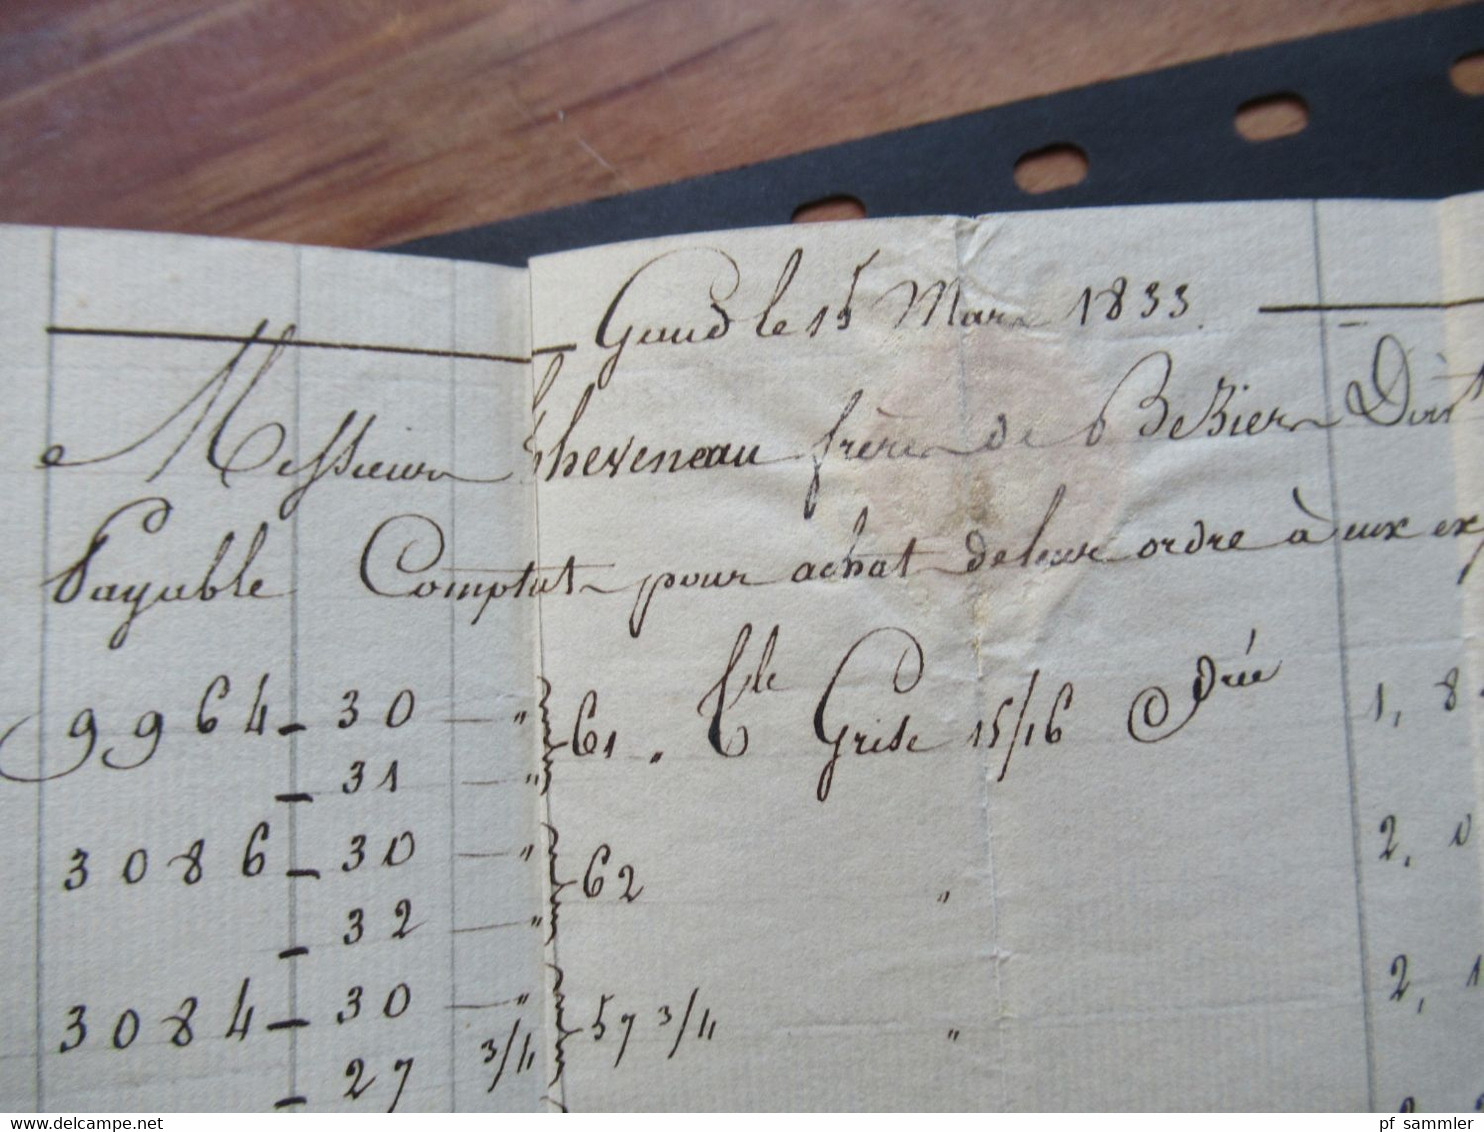 Gand le 15 Mars 1833.
Messieurs Theveneau frères de Beziers Doiv
Payable Comptat pour achat de leur ordre à eux ex
9964 - 30 — " 61 . Tle Grise 15/16 1,8
- 31 — "
3086 - 30 — " 62 " 2,0
- 32 — "
3084 - 30 — " 57 3/4 " 2,1
- 27 3/4
www.delcampe.net
pf_sammler